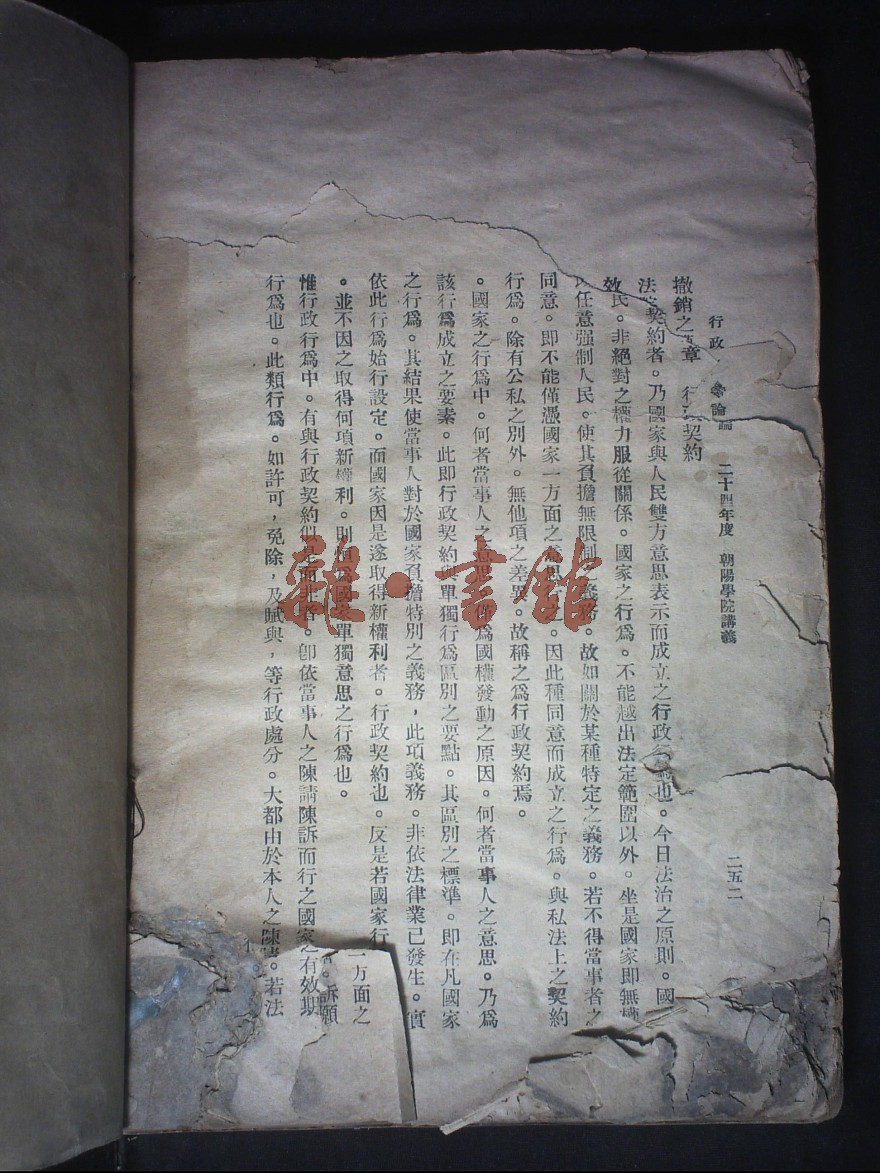 行政 論 二十四年度 朝陽學院講義 二五二
撤銷之 章 行 契約
法 契約者。乃國家與人民雙方意思表示而成立之行政 爲也。今日法治之原則。國
效民。非絕對之權力服從關係。國家之行爲。不能越出法定範圍以外。坐是國家即無權
任意强制人民。使其負擔無限制之義務。故如關於某種特定之義務。若不得當事者之
同意。即不能僅憑國家一方面之意思 之。因此種同意而成立之行爲。與私法上之契約
行爲。除有公私之別外。無他項之差異。故稱之爲行政契約焉。
。國家之行爲中。何者當事人之意思。僅爲國權發動之原因。何者當事人之意思。乃爲
該行爲成立之要素。此即行政契約與單獨行爲區別之要點。其區別之標準。即在凡國家
之行爲。其結果使當事人對於國家負擔特別之義務，此項義務。非依法律業已發生。實
依此行爲始行設定。而國家因是遂取得新權利者。行政契約也。反是若國家行 一方面之
。並不因之取得何項新權利。則 爲國家單獨意思之行爲也。 訴願
惟行政行爲中。有與行政契約似是而非者。卽依當事人之陳請陳訴而行之國家 有效期
行爲也。此類行爲。如許可，免除，及賦與，等行政處分。大都由於本人之陳 。若法
雜·書館